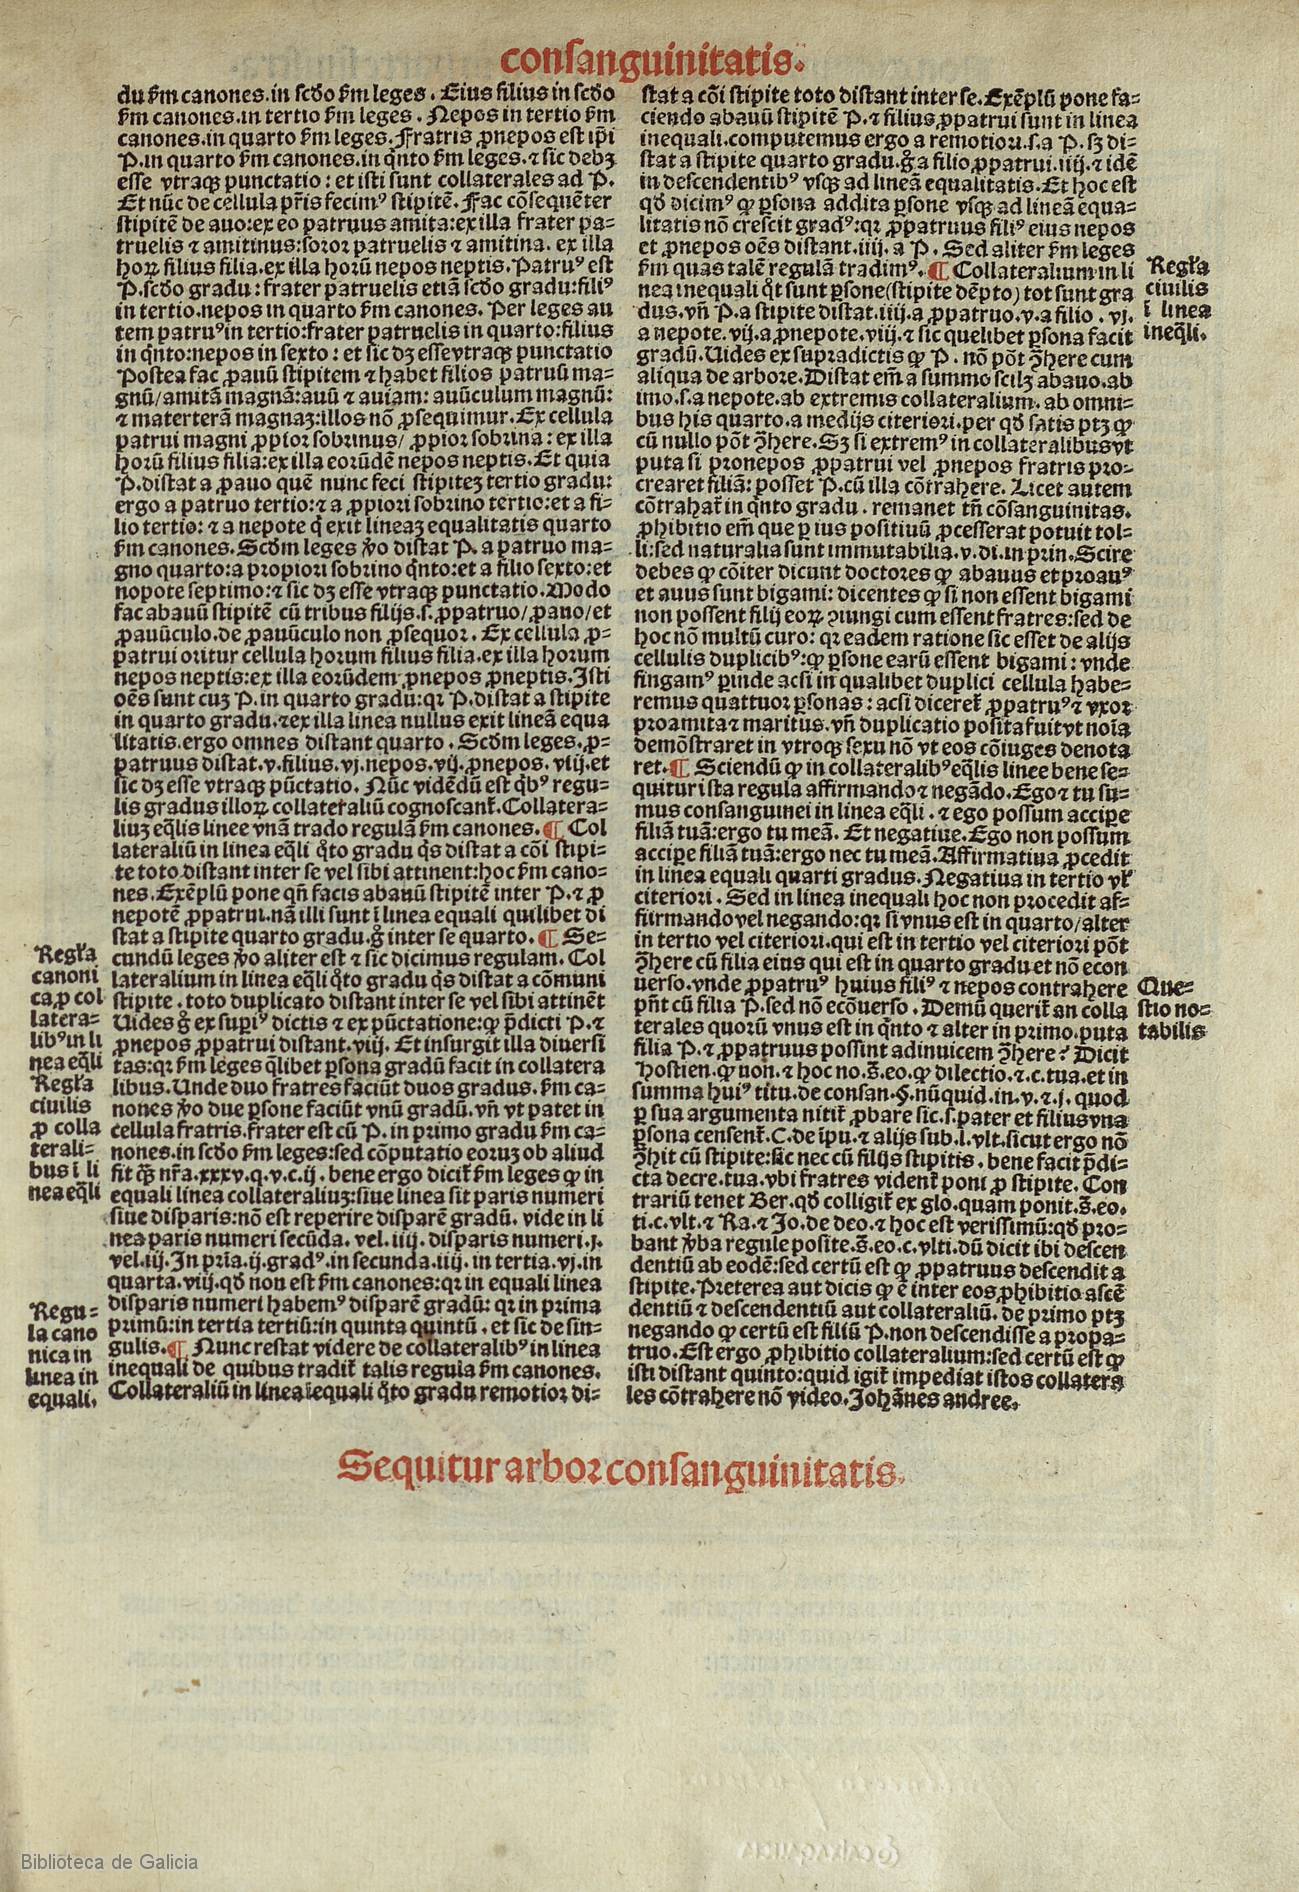 consanguinitatis.
du fm canones.in scđo fm leges. Eius filius in scđo
fm canones.in tertio fm leges. Nepos in tertio fm
canones.in quarto fm leges. Fratris ꝓnepos est ip̄i
P.in quarto fm canones.in q̄nto fm leges.⁊ sic debꝫ
esse vtraqꝫ punctatio: et isti sunt collaterales ad P.
Et nūc de cellula pr̄is fecimꝰ stipitē. Fac cōsequēter
stipitē de auo:ex eo patruus amita:ex illa frater pa-
truelis ⁊ amitinus:soror patruelis ⁊ amitina. ex illa
hoꝝ filius filia.ex illa horū nepos neptis. Patruꝰ est
P.scđo gradu: frater patruelis etiā scđo gradu:filiꝰ
in tertio.nepos in quarto fm canones. Per leges au
tem patruꝰ in tertio:frater patruelis in quarto:filius
in q̄nto:nepos in sexto: et sic dꝫ esse vtraqꝫ punctatio
Postea fac ꝓauū stipitem ⁊ habet filios patruū ma-
gnū/amitā magnā:auū ⁊ auiam: auūculum magnū:
⁊ materterā magnaꝫ:illos nō ꝓsequimur. Ex cellula
patrui magni ꝓpior sobrinus/ ꝓpior sobrina: ex illa
horū filius filia:ex illa eorūdē nepos neptis. Et quia
P.distat a ꝓauo quē nunc feci stipiteꝫ tertio gradu:
ergo a patruo tertio:⁊ a ꝓpiori sobrino tertio:et a fi-
lio tertio: ⁊ a nepote q̄ exit lineaꝫ equalitatis quarto
fm canones. Scđm leges ꝟo distat P. a patruo ma-
gno quarto:a propiori sobrino q̄nto:et a filio sexto:et
nopote septimo:⁊ sic dꝫ esse vtraqꝫ punctatio. Modo
fac abauū stipitē cū tribus filijs.s.ꝓpatruo/ꝓauo/et
ꝓauūculo.de ꝓauūculo non ꝓsequor. Ex cellula ꝓ-
patrui oritur cellula horum filius filia.ex illa horum
nepos neptis:ex illa eorūdem ꝓnepos ꝓneptis. Isti
oēs sunt cuꝫ P.in quarto gradu:qꝛ P.distat a stipite
in quarto gradu.⁊ ex illa linea nullus exit lineā equa
litatis.ergo omnes distant quarto. Scđm leges.ꝓ-
patruus distat.v.filius.vj.nepos.vij.ꝓnepos. viij.et
sic dꝫ esse vtraqꝫ pūctatio. Nūc vidēdū est q̄bꝰ regu-
lis gradus illoꝝ collateraliū cognoscant̃. Collatera-
liuꝫ eq̄lis linee vnā trado regulā fm canones. ¶ Col
lateraliū in linea eq̄li q̊to gradu q̄s distat a cōi stipi-
te toto distant inter se vel sibi attinent:hoc fm cano-
nes. Exēplū pone qn̄ facis abauū stipitē inter P. ⁊ ꝓ
nepotē ꝓpatrui.nā illi sunt ī linea equali quilibet di
stat a stipite quarto gradu.g̊ inter se quarto. ¶ Se-
cundū leges ꝟo aliter est ⁊ sic dicimus regulam. Col
lateralium in linea eq̄li q̊to gradu q̄s distat a cōmuni
stipite. toto duplicato distant inter se vel sibi attinēt
Uides g̊ ex supiꝰ dictis ⁊ ex pūctatione:ꝙ p̄dicti P. ⁊
ꝓnepos ꝓpatrui distant.viij. Et insurgit illa diuersi
tas:qꝛ fm leges q̄libet ꝑsona gradū facit in collatera
libus. Unde duo fratres faciūt duos gradus. fm ca-
nones ꝟo due ꝑsone faciūt vnū gradū. vn̄ vt patet in
cellula fratris.frater est cū P. in primo gradu fm ca-
nones.in scđo fm leges:sed cōputatio eoruꝫ ob aliud
fit q̄ꝫ nr̄a.xxxv.q.v.c.ij. bene ergo dicit̃ fm leges ꝙ in
equali linea collateraliuꝫ:siue linea sit paris numeri
siue disparis:nō est reperire disparē gradū. vide in li
nea paris numeri secūda. vel.iiij. disparis numeri.j.
vel.iij. In pr̄ia.ij.gradꝰ.in secunda.iiij. in tertia.vj.in
quarta.viij.qđ non est fm canones:qꝛ in equali linea
disparis numeri habemꝰ disparē gradū: qꝛ in prima
primū:in tertia tertiū:in quinta quintū. et sic de sin-
gulis. ¶ Nunc restat videre de collateralibꝰ in linea
inequali de quibus tradit̃ talis regula fm canones.
Collateraliū in linea inequali q̊to gradu remotior di-
Regl̃a
canoni
ca ꝓ col
latera-
libꝰ in li
nea eq̄li
Regl̃a
ciuilis
ꝓ colla
terali-
bus ī li
nea eq̄li
Regu-
la cano
nica in
linea in
equali.
stat a cōi stipite toto distant inter se. Exēplū pone fa-
ciendo abauū stipitē P. ⁊ filius ꝓpatrui sunt in linea
inequali.computemus ergo a remotiori.s.a P. sꝫ di-
stat a stipite quarto gradu.g̊ a filio ꝓpatrui.iiij.⁊ idē
in descendentibꝰ vsqꝫ ad lineā equalitatis. Et hoc est
qđ dicimꝰ ꝙ ꝑsona addita ꝑsone vsqꝫ ad lineā equa-
litatis nō crescit gradꝰ:qꝛ ꝓpatruus filiꝰ eius nepos
et ꝓnepos oēs distant.iiij. a P. Sed aliter fm leges
fm quas talē regulā tradimꝰ. ¶ Collateralium in li
nea inequali q̊t sunt ꝑsone(stipite dēpto) tot sunt gra
dus. vn̄ P. a stipite distat.iiij.a ꝓpatruo.v.a filio. vj.
a nepote.vij.a ꝓnepote.viij.⁊ sic quelibet ꝑsona facit
gradū. Uides ex supradictis ꝙ P. nō pōt ꝯhere cum
aliqua de arbore. Distat em̄ a summo scilꝫ abauo.ab
imo.s.a nepote.ab extremis collateralium. ab omni-
bus his quarto.a medijs citeriori.per qđ satis ptꝫ ꝙ
cū nullo pōt ꝯhere. Sꝫ si extremꝰ in collateralibus vt
puta si pronepos ꝓpatrui vel ꝓnepos fratris pro-
crearet filiā: posset P. cū illa cōtrahere. Licet autem
cōtrahat̃ in q̄nto gradu. remanet tn̄ cōsanguinitas.
ꝓhibitio em̄ que ꝑ ius positiuū ꝓcesserat potuit tol-
li:sed naturalia sunt immutabilia.v.di.in prin. Scire
debes ꝙ cōiter dicunt doctores ꝙ abauus et proauꝰ
et auus sunt bigami: dicentes ꝙ si non essent bigami
non possent filij eoꝝ ꝯiungi cum essent fratres:sed de
hoc nō multū curo: qꝛ eadem ratione sic esset de alijs
cellulis duplicibꝰ:ꝙ ꝑsone earū essent bigami: vnde
fingamꝰ ꝑinde acsi in qualibet duplici cellula habe-
remus quattuor ꝑsonas: acsi diceret̃ ꝓpatruꝰ ⁊ vxor
proamita ⁊ maritus. vn̄ duplicatio posita fuit vt noīa
demōstraret in vtroqꝫ sexu nō vt eos cōiuges denota
ret. ¶ Sciendū ꝙ in collateralibꝰ eq̄lis linee bene se-
quitur ista regula affirmando ⁊ negādo. Ego ⁊ tu su-
mus consanguinei in linea eq̄li. ⁊ ego possum accipe
filiā tuā:ergo tu meā. Et negatiue. Ego non possum
accipe filiā tuā:ergo nec tu meā. Affirmatiua ꝓcedit
in linea equali quarti gradus. Negatiua in tertio vl̃
citeriori. Sed in linea inequali hoc non procedit af-
firmando vel negando:qꝛ si vnus est in quarto/alter
in tertio vel citeriori.qui est in tertio vel citeriori pōt
ꝯhere cū filia eius qui est in quarto gradu et nō econ
uerso.vnde ꝓpatruꝰ huius filiꝰ ⁊ nepos contrahere
pn̄t cū filia P. sed nō ecōuerso. Demū querit̃ an colla
terales quorū vnus est in q̄nto ⁊ alter in primo.puta
filia P. ⁊ ꝓpatruus possint adinuicem ꝯhere? Dicit
Hostien. ꝙ non. ⁊ hoc no. s̄. eo. ꝙ dilectio. ⁊.c. tua. et in
summa huiꝰ titu. de consan. §. nūquid. in. v. ⁊. j. quod
ꝑ sua argumenta nitit̃ ꝓbare sic. s. pater et filius vna
ꝑsona censent̃. C. de īpu. ⁊ alijs sub. l. vlt. sicut ergo nō
ꝯhit cū stipite: sic nec cū filijs stipitis. bene facit p̄di-
cta decre. tua. vbi fratres vident̃ poni ꝓ stipite. Con
trariū tenet Ber. qđ colligit̃ ex glo. quam ponit. s̄. eo.
ti. c. vlt. ⁊ Ra. ⁊ Jo. de deo. ⁊ hoc est verissimū: qđ pro-
bant ꝟba regule posite. s̄. eo. c. vlti. dū dicit ibi descen
dentiū ab eodē: sed certū est ꝙ ꝓpatruus descendit a
stipite. Preterea aut dicis ꝙ ē inter eos ꝓhibitio ascē
dentiū ⁊ descendentiū aut collateraliū. de primo ptꝫ
negando ꝙ certū est filiū P. non descendisse a propa-
truo. Est ergo ꝓhibitio collateralium: sed certū est ꝙ
isti distant quinto: quid igit̃ impediat istos collatera
les cōtrahere nō video. Johānes andree.
Regl̃a
ciuilis
ī linea
ineq̄li.
Que-
stio no-
tabilis
Sequitur arbor consanguinitatis.
Biblioteca de Galicia